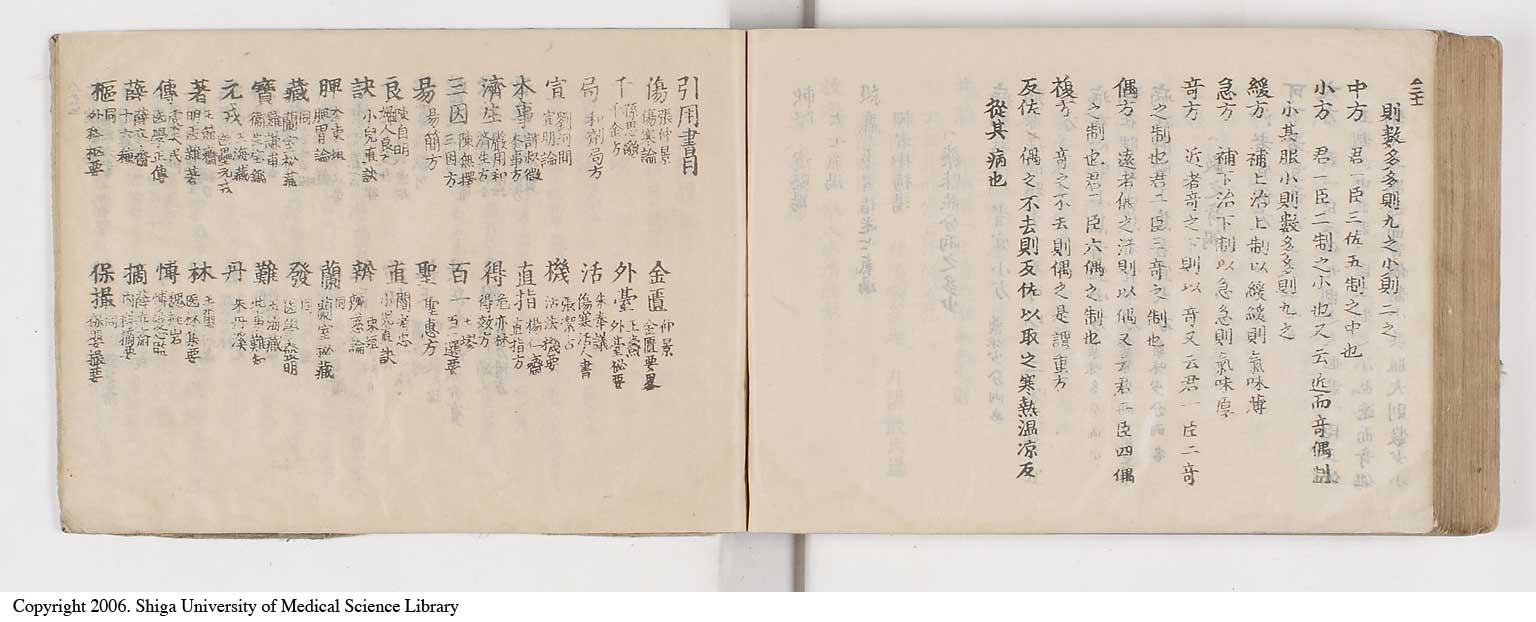 則数多多則九之小則二之
中方 君一臣三佐五制之中也
小方 君一臣二制之小也又云近而奇偶制
小其服小則数多多則九之
緩方 補上治上制以緩緩則氣味薄
急方 補下治下制以急急則氣味厚
奇方 近者奇之下則以奇又云君一臣二奇
之制也君二臣三奇之制也
偶方 遠者偶之汗則以偶又云君二臣四偶
之制也君二臣六偶之制也
複方 奇之不去則偶之是謂重方
反佐 偶之不去則反佐以取之寒熱温凉反
從其病也
引用書目
傷 張仲景 傷寒論
金匱 仲景 金匱要畧
千 孫思邈 千金方
外臺 王燾 外臺秘要
局 和劑局方
活 朱奉議 傷寒活人書
宣 劉河間 宣明論
機 張潔古 活法機要
本事 許叔微 本事方
直指 楊仁齋 直指方
濟生 嚴用和 濟生方
得 危亦林 得効方
三因 陳無擇 三因方
百一 王璆 百一選要
易 易簡方
聖 聖惠方
良 陳自明 婦人良方
直 閻孝忠 小児直訣
訣 小兒直訣
辨 東垣 辨惑論
脾 李東垣 脾胃論
蘭 同 蘭室秘藏
藏 同 蘭室秘藏
發 同 医學發明
寶 羅謙甫 衛生宝鑑
難 王海藏 此事難知
元戎 王海藏 医壘元戎
丹 朱丹溪
著 王節齋 明医雜著
林 王璽 医林集要
傳 虞天民 医學正傳
博 魏桂岩 博愛心鑑
薛 薛立齋 十六種
摘 薛立齋 内科摘要
樞 同 外科樞要
保撮 同 保嬰撮要
Copyright 2006. Shiga University of Medical Science Library